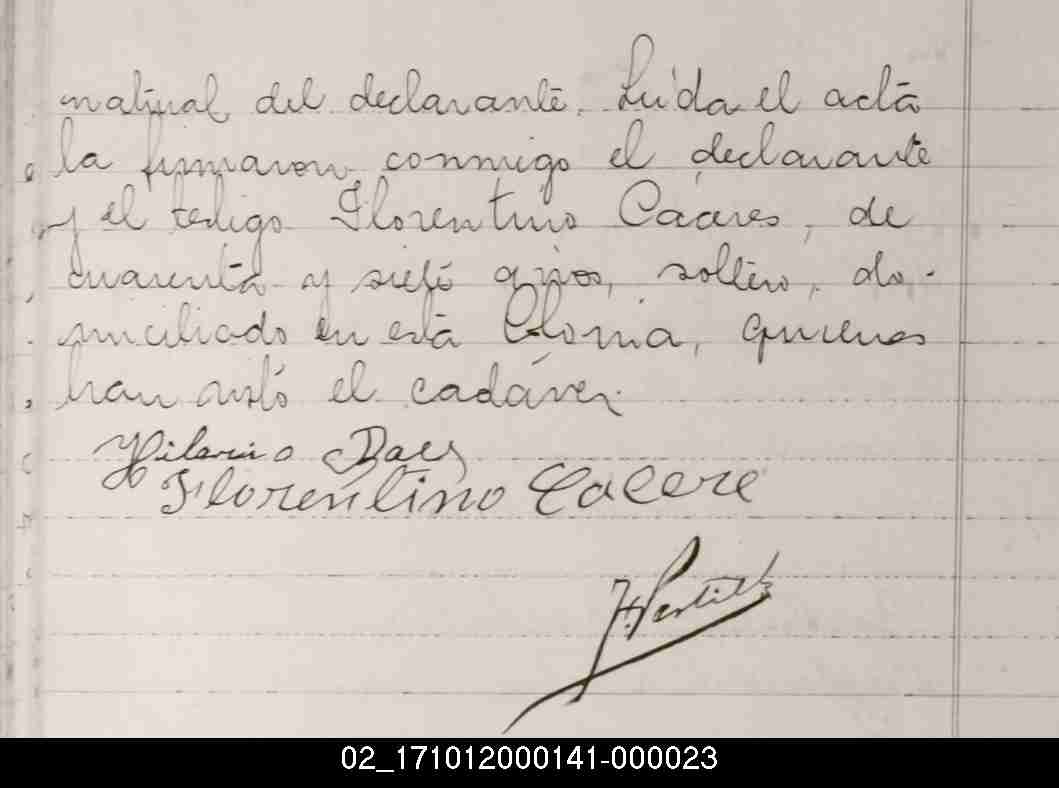 natural del declarante. Leída el acta
la firmaron conmigo el declarante
y el testigo Florentino Cáceres, de
cuarenta y siete años, soltero, do-
miciliado en esta Colonia, quienes
han visto el cadáver.
Hilario Baez
Florentino Cacere
02_171012000141-000023